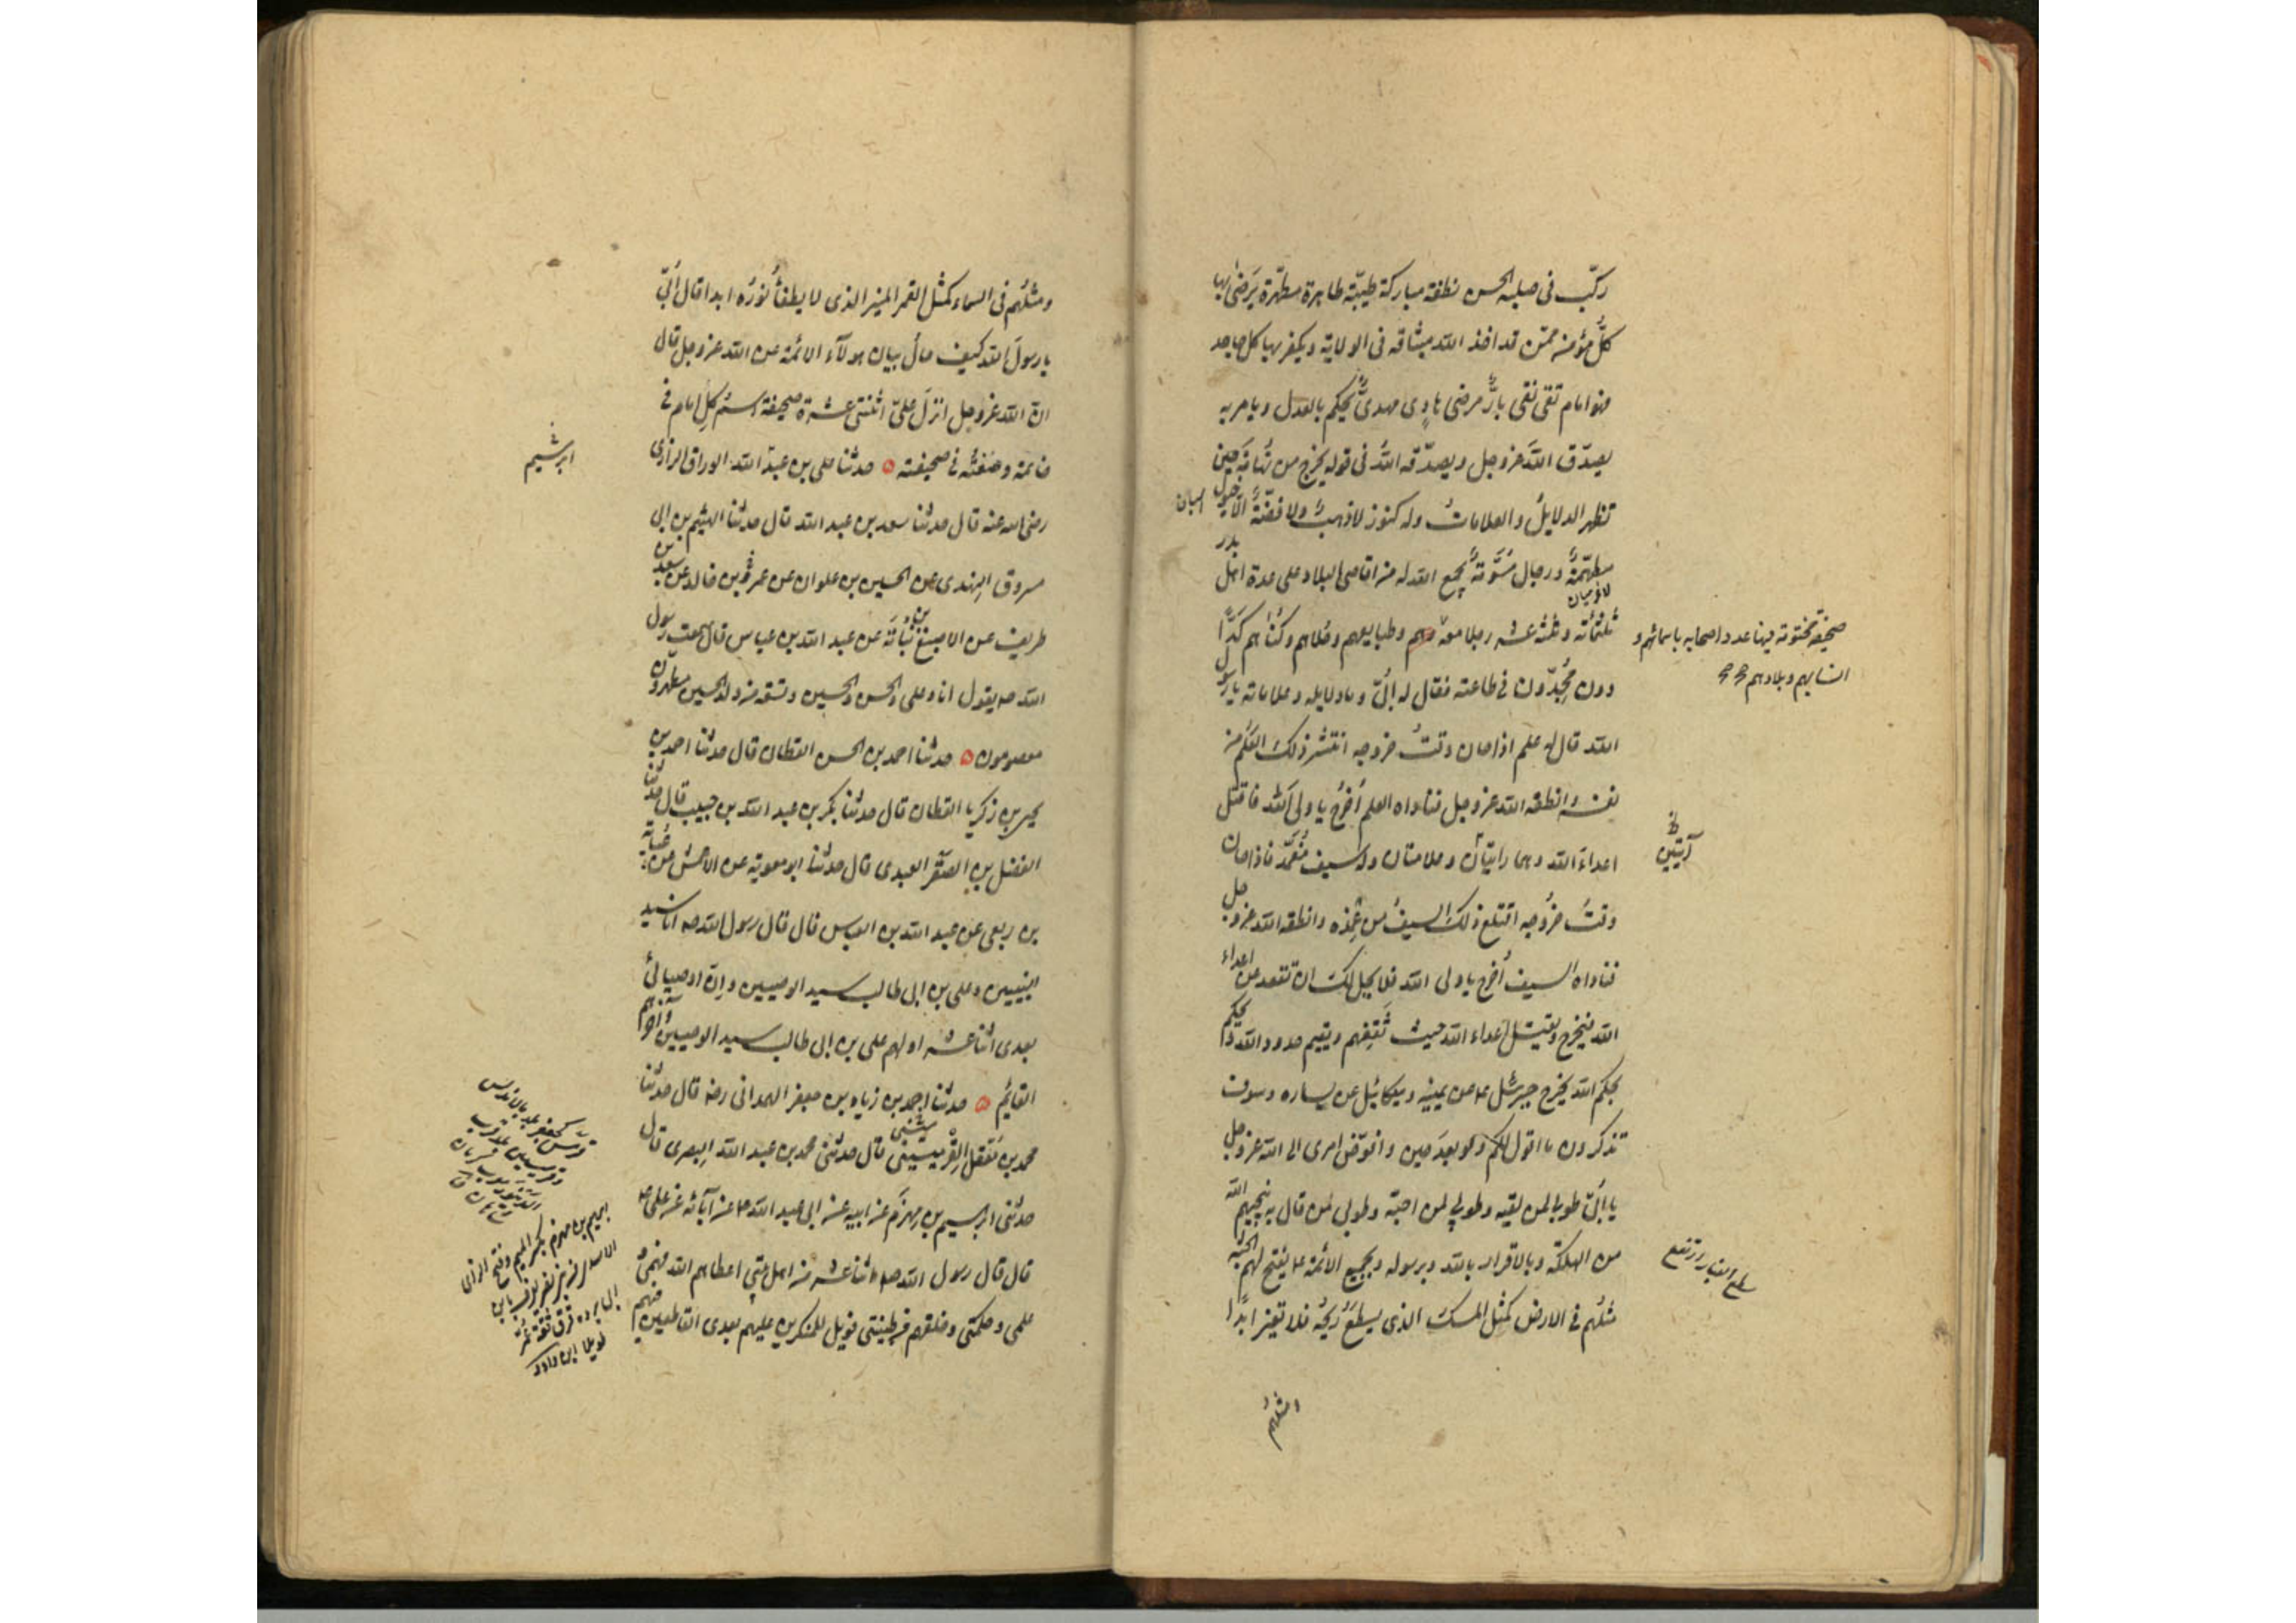 ركّب فى صلبه الحسن نطفة مباركة طيّبة طاهرة مطهّرة يَرضىٰ بها
كلُّ مؤمنٍ ممّن قد اخذ الله ميثاقه فى الولاية ويكفر بها كل جاحد
فهو امام تقى نقى بارٌّ مرضى هادٍى مهدىٌّ يحكم بالعدل ويامر به
يصدّق اللهَ عزوجل ويصدّقه اللهُ فى قوله يخرج من تُهامَةَ حين
تظهر الدلايلُ والعلاماتُ وله كنوز لا ذهبٌ ولا فضّةٌ الّا خيول
مطهّمةٌ ورجال مُسَوَّمَةٌ يجمع الله له من اقاصى البلاد على عدة اهل بدر
ثلثمائة وثلثة عشر رجلا معه
صحيفة مختومة فيها عدد اصحابه باسمائهم و
انسابهم وبلادهم
وطبايعهم وحُلاهم وكُناهم كَدّا
دون مُجِدّون فى طاعته فقال له اُبىّ وما دلايله وعلاماته يا رسول
الله قال له علم اذا حان وقتُ خروجه انتشر ذلك العَلَم من
نفسه وانطقه الله عزوجل فناداه العلم اُخرُج يا ولى الله فاقتل
اعداءَ الله وهما رايتان وعلامتان وله سيف مُغمَد فاذا حان
آيتين
وقتُ خرُوجه اقتلع ذلك السيفُ من غِمْده وانطقه الله عزوجل
فناداه السيف اُخرج يا ولى الله فلا يحل لك ان تقعد عن اعداء
الله فيخرج ويقتل اعداء الله حيث ثَقِفهم ويقيم حدود الله ويحكم
بحكم الله يخرج جبرئيل عن يمينه وميكائيل عن يساره وسوف
تذكرون ما اقول لكم ولو بعدَ حين وافوّض امرى الى الله عزوجل
يا اُبَىّ طوبى لمن لقيه وطوبى لمن احبّه وطوبى لمن قال به ينجيهم الله
من الهلكة وبالاقرار بالله وبرسوله وبجميع الائمة يفتح لهم الجنة
مَثلُهم فى الارض كمثل المسك الذى يسطَعُ ريحُه فلا تغير ابدًا
ومثلُهم فى السماء كمثل القمر المنير الذى لا يطفأُ نورُه ابدا قال اُبىّ
يا رسولَ الله كيف حالُ بيان هولآء الائمة عن الله عزوجل قال
انّ الله عزوجل انزلَ علىّ اثنتى عشرة صحيفة اسم كل امام فى
خاتمه وصفتُه فى صحيفته حدثنا على بن عبد الله الوراق الرازى
رضى الله عنه قال حدثنا سعد بن عبد الله قال حدثنا الهيثم بن ابى
مسروق النهدى عن الحسين بن علوان عن عمرو بن خالد عن سعد بن
طريف عن الاصبغ بن نُباتَة عن عبد الله بن عباس قال سمعت رسول
الله صه يقول انا وعلى والحسن والحسين وتسعة من ولد الحسين مطهرون
معصومون حدثنا احمد بن الحسن القطان قال حدثنا احمد بن
يحيى بن زكريا القطان قال حدثنا بكر بن عبد الله بن حبيب قال حدثنا
الفضل بن الصقر العبدى قال حدثنا ابو معوية عن الاعمش عن عباية
بن ربعى عن عبد الله بن العباس قال قال رسول الله صه انا سيد
النبيين وعلى بن ابى طالب سيد الوصيين وانّ اوصيائى
بعدى اثنا عشر اولهم على بن ابى طالب سيد الوصيين وآخرهم
القايم حدثنا احمد بن زياد بن جعفر الهمدانى رضه قال حدثنا
محمد بن معقل القِرْميسينى قال حدثنى محمد بن عبد الله البصرى قال
حدثنى ابرهيم بن مِهزَم عن ابيه عن ابى عبد الله ع عن آبائه عن على ع
قال قال رسول الله صه اثنا عشر من اهل بيتى اعطاهم الله فهمى و
علمى وحكمتى وخلقهم من طينتى فويل للمنكرين عليهم بعدى القاطعين فيهم